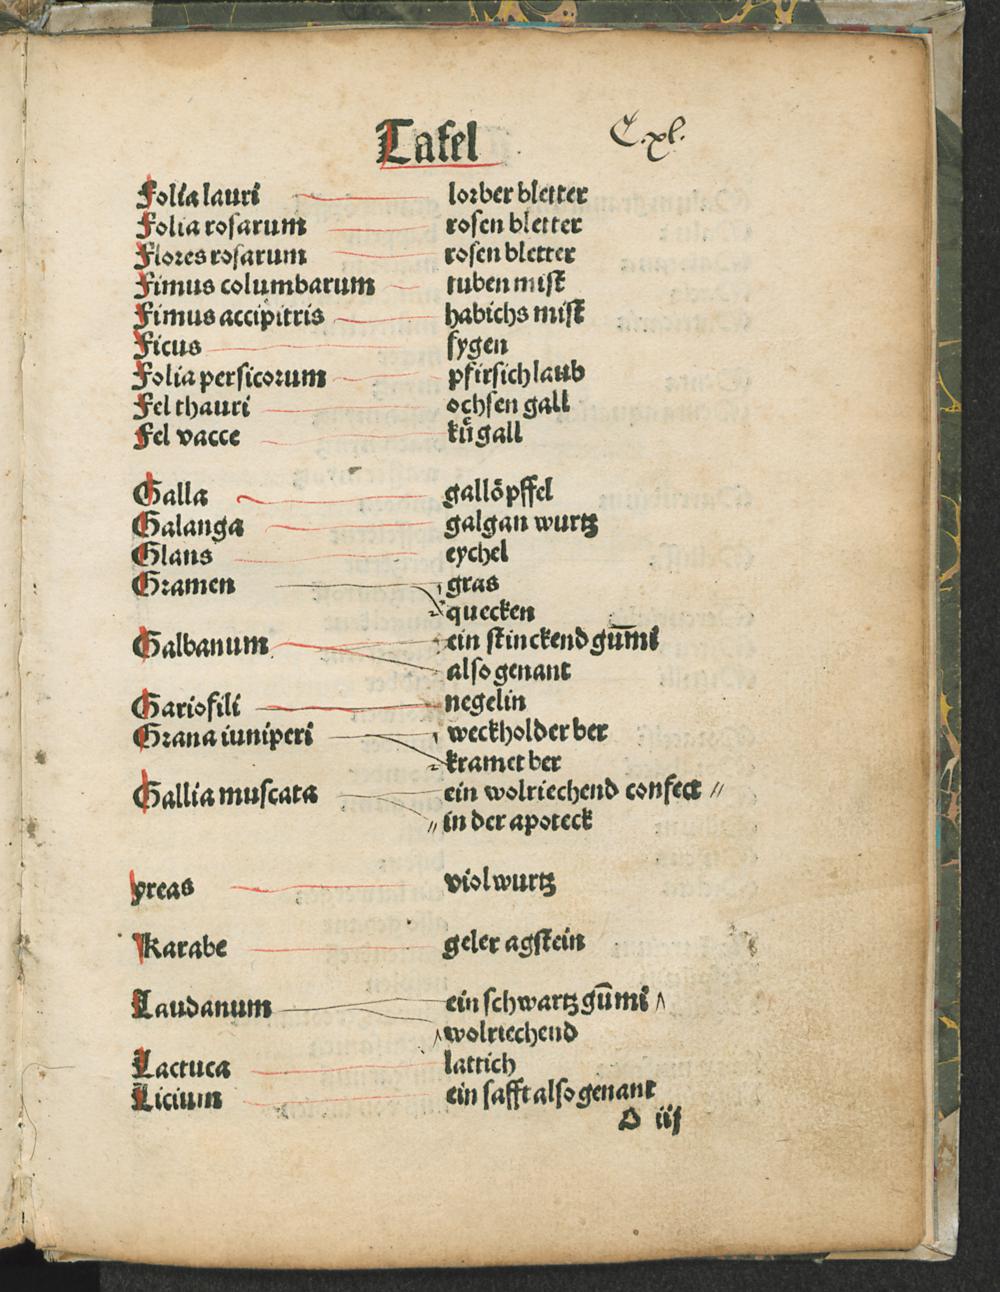 Tafel C.xl.
Folia lauri lorber bletter
Folia rosarum rosen bletter
Flores rosarum rosen bletter
Fimus columbarum tuben mist
Fimus accipitris habichs mist
Ficus fygen
Folia persicorum pfirsich laub
Fel thauri ochsen gall
Fel vacce kůgall
Galla gallöpffel
Galanga galgan wurtz
Glans eychel
Gramen gras
quecken
Galbanum ein stinckend gūmi
also genant
Gariofili negelin
Grana iuniperi weckholder ber
kramet ber
Gallia muscata ein wolriechend confect //
// in der apoteck
yreas violwurtz
Karabe geler agstein
Laudanum ein schwartz gūmi
wolriechend
Lactuca lattich
Licium ein safft also genant
D iij